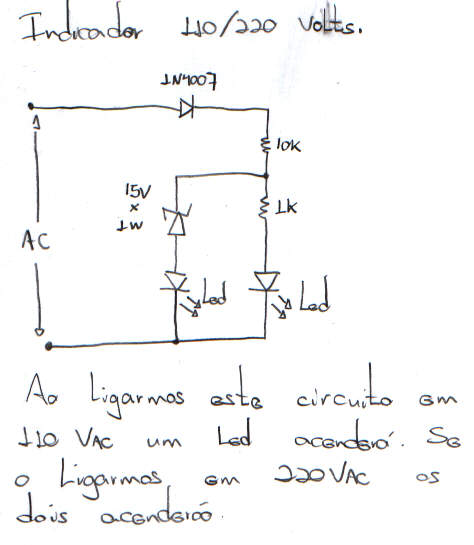 Indicador 110/220 Volts.
1N4007
10K
15V
x
1W
1K
AC
Led
Led
Ao Ligarmos este circuito em
110 VAC um Led acenderá. Se
o Ligarmos em 220VAC os
dois acenderão.